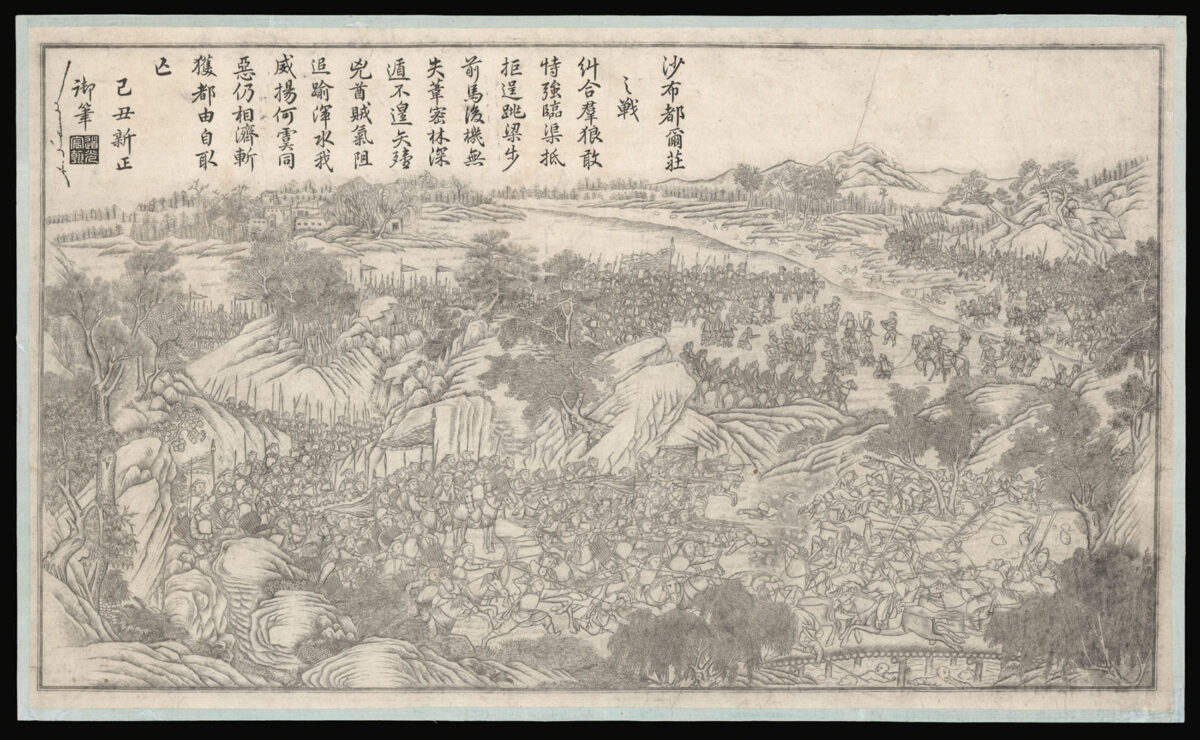 沙布都爾莊
之戰
糾合羣狼敢
恃強臨渠抵
拒逞跳梁步
前馬後機無
失葦密林深
遁不遑矢殪
兇酋賊氣阻
追踰渾水我
威揚何虞同
惡仍相濟斬
獲都由自取
亡
己丑新正
御筆
道光宸翰